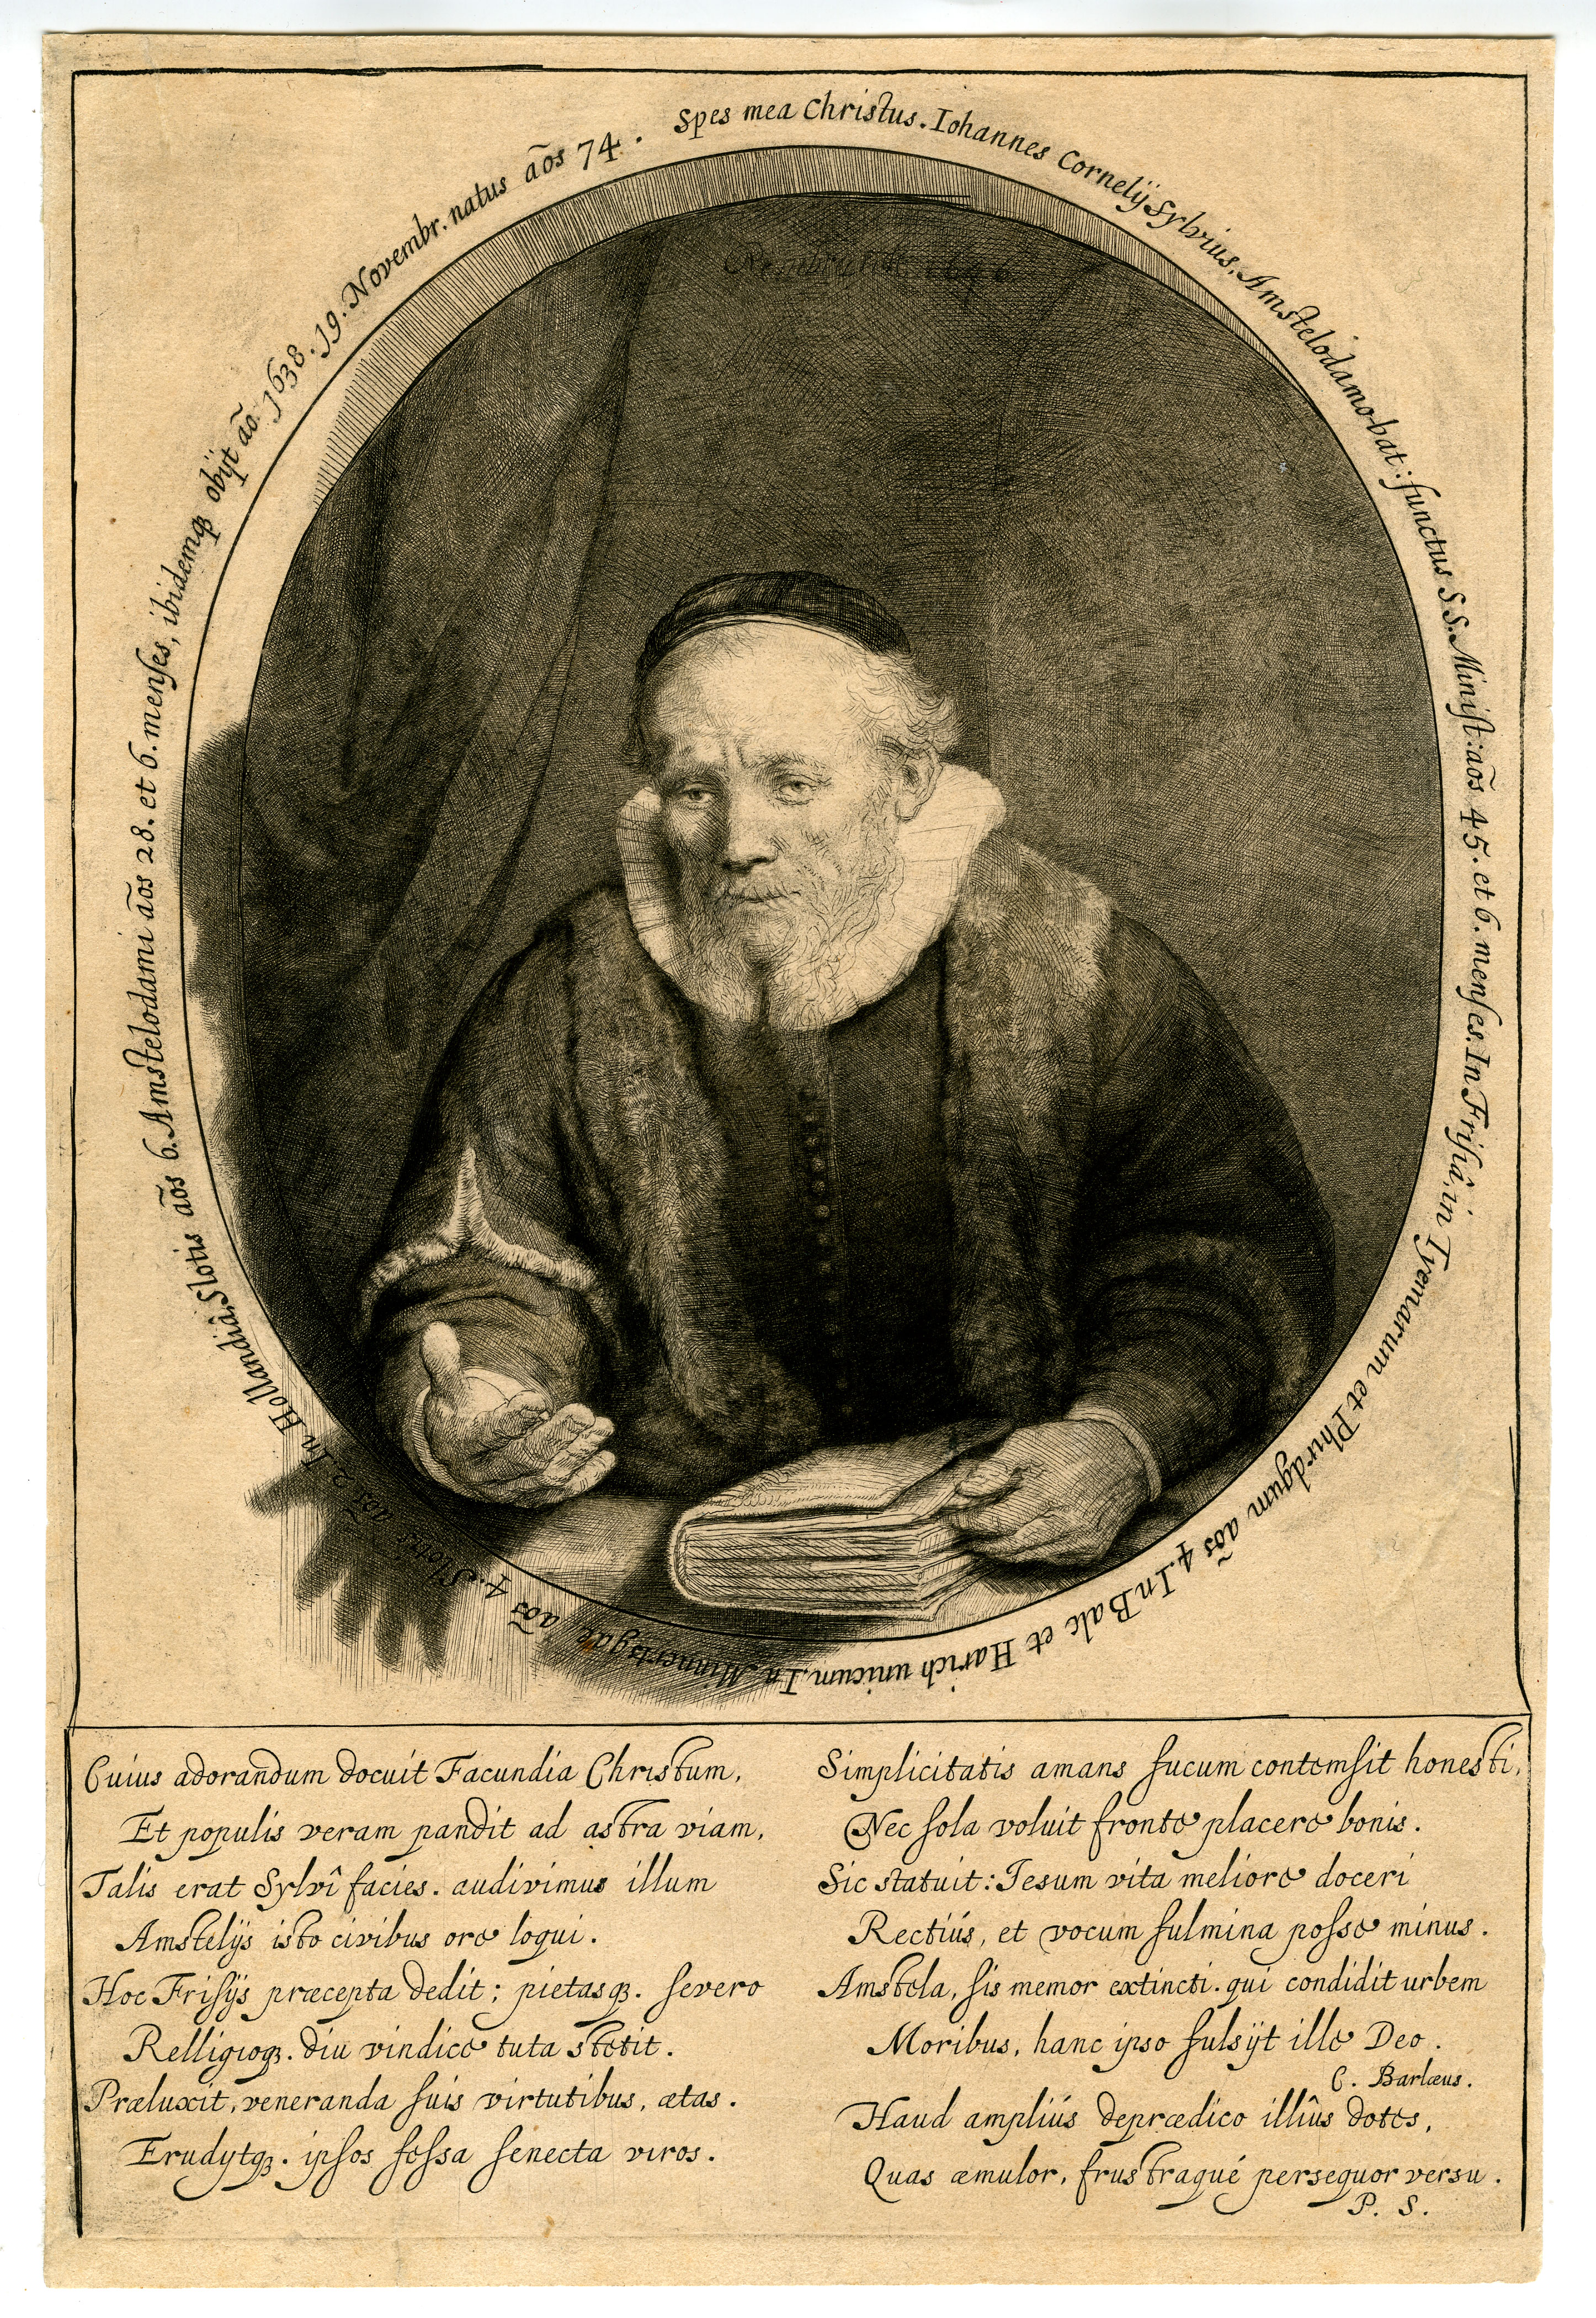 Spes mea Christus. Iohannes Cornelÿ Sylvius, Amstelodamo-bat: functus S S. Minist: aōs 45. et 6. menses. In Frisiâ, in Tyemarum et Phirdgum aōs 4. In Balc et Harich unicum. In Minnertsgae aōs 4. Slotis aōs 2. In Hollandiâ, Slotis aōs 6. Amstelodami aōs 28. et 6. menses, ibidemqꝫ obÿt aō 1638. 19. Novembr. natus aōs 74.
Rembrandt 1646
Cuius adorandum docuit Facundia Christum,
Et populis veram pandit ad astra viam,
Talis erat Sylvî facies. audivimus illum
Amstelÿs isto civibus ore loqui.
Hoc Frisÿs præcepta dedit; pietasqꝫ. severo
Relligioqꝫ. diu vindice tuta stetit.
Præluxit, veneranda suis virtutibus, ætas.
Erudÿtqꝫ. ipsos fessa senecta viros.
Simplicitatis amans fucum contemsit honesti,
Nec sola voluit fronte placere bonis.
Sic statuit: Iesum vita meliore doceri
Rectiús, et vocum fulmina posse minus.
Amstela, sis memor extincti. qui condidit urbem
Moribus, hanc ipso fulsÿt ille Deo.
C. Barlæus.
Haud ampliús deprædico illîus dotes,
Quas æmulor, frustraqué persequor versu.
P. S.